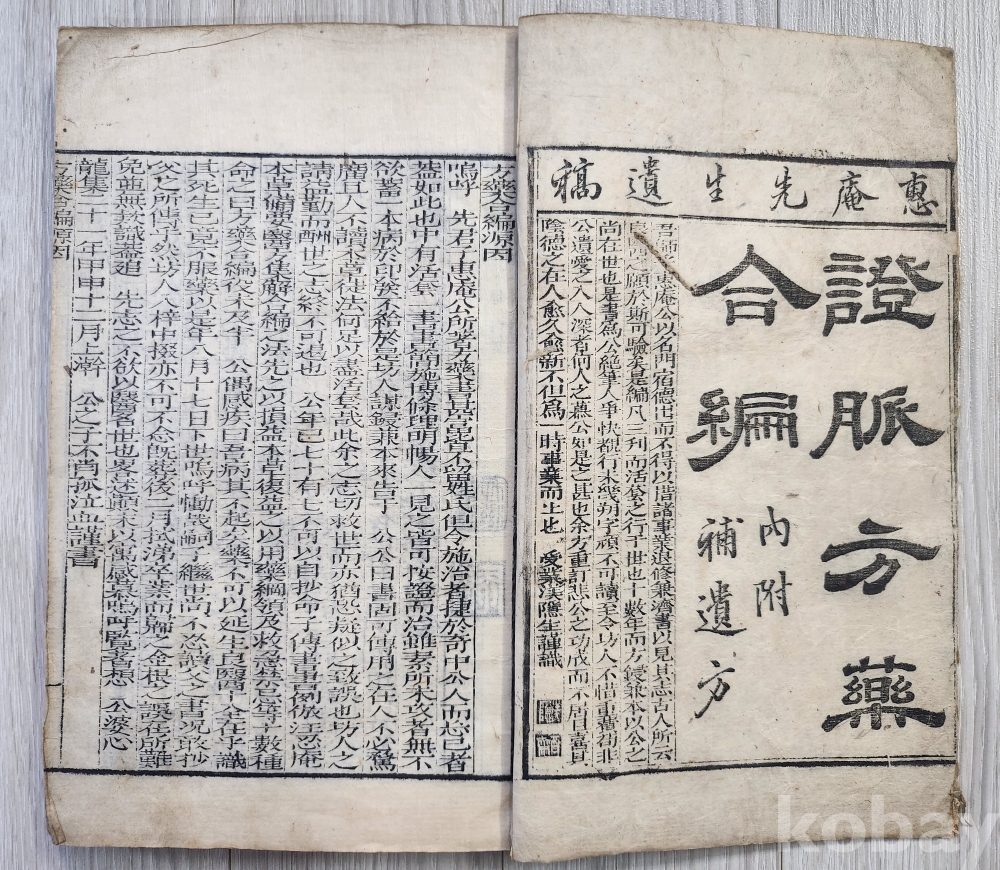 惠庵先生遺稿
證脈方藥
合編
內附
補遺方
吾師惠庵公以名門宿德出而不得以措諸事業退修兼濟書以見其志古人所云
四願於斯可驗矣是編凡三刊而活套之行于世也十數年而方發兼本以公之
尚在世也是書爲公絶筆人爭快覩行未幾朔字頑不可讀至今坊人不惜重藁劾非
公遺愛之入人深者何人之慕公如是之甚也余方重訂悲公之功成而不居目嘉其
陰德之在人愈久愈新不但爲一時事業而止也 受業漢隱生謹識
方藥合編源因
嗚呼 先君子惠庵公所著方藥書皆不留姓氏但令施治者捷於奇中公人而忘己者
蓋如此也中有活套一書書旨簡施博條理明暢人一見之皆可按證而治雖素所未攻者無不
欲蓄一本病於印澁不給於是坊人謀鋟兼本來告于 公公曰書固可傳用之在人不必駕
虛且人不讀本草徒法何足以盡活套哉此余之志切救世而亦猶恐疑似之致誤也坊人之
請旣勤而酬世之志終不可遏也 公年已七十有七不可以自抄命子傳書書例倣汪訒庵
本草備要醫方集解合編之法先之以損益本草復益之以用藥綱領及救急禁忌等十數種
命之曰方藥合編役未及半 公偶感疾曰吾病其不起矣藥不可以延生良醫十全在乎識
其死生已竟不服藥以是年八月十七日下世嗚呼慟哉嗣子繼世尚不忍讀父之書況敢抄
父之所傳乎然坊人入梓中掇亦不可不念旣葬後二月拭涕卒業而歸之金根之誤在所難
免並無執識盖追 先志之不欲以醫著世也畧述顚末以寓感慕嗚呼覽者想 公婆心
龍集二十一年甲申十二月上澣 公之子不肖孤泣血謹書
方藥合編源因
kobay